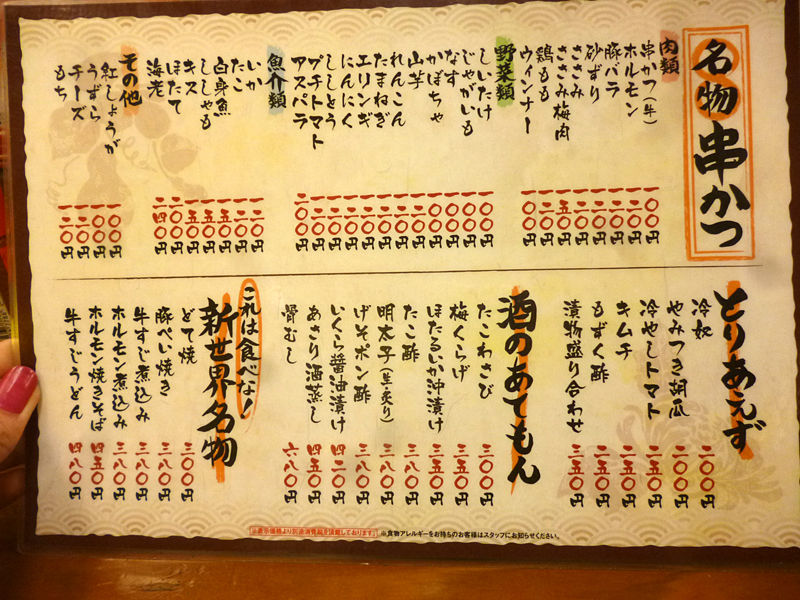 名物串かつ
肉類
串かつ(牛) 一〇〇円
ホルモン 一二〇円
豚バラ 一二〇円
砂ずり 一二〇円
ささみ 一二〇円
ささみ梅肉 一五〇円
鶏もも 一二〇円
ウィンナー 一〇〇円
野菜類
しいたけ 一〇〇円
じゃがいも 一〇〇円
なす 一〇〇円
かぼちゃ 一〇〇円
山芋 一二〇円
れんこん 一二〇円
たまねぎ 一二〇円
エリンギ 一二〇円
にんにく 一二〇円
ししとう 一二〇円
プチトマト 一二〇円
アスパラ 二〇〇円
魚介類
いか 一二〇円
たこ 一二〇円
白身魚 一五〇円
ししゃも 一五〇円
キス 一五〇円
ほたて 二〇〇円
海老 二四〇円
その他
紅しょうが 一〇〇円
うずら 一〇〇円
チーズ 一二〇円
もち 一二〇円
とりあえず
冷奴 二〇〇円
やみつき胡瓜 二〇〇円
冷やしトマト 二五〇円
キムチ 二五〇円
もずく酢 二五〇円
漬物盛り合わせ 三五〇円
酒のあてもん
たこわさび 三〇〇円
梅くらげ 三五〇円
ほたるいか沖漬け 三五〇円
たこ酢 三八〇円
明太子(生・炙り) 三八〇円
げそポン酢 三八〇円
いくら醤油漬け 四二〇円
あさり酒蒸し 四五〇円
骨むし 六八〇円
これは食べな!
新世界名物
どて焼 三〇〇円
豚ぺい焼き 三八〇円
牛すじ煮込み 三八〇円
ホルモン煮込み 三八〇円
ホルモン焼きそば 四五〇円
牛すじうどん 四八〇円
※表示価格より別途消費税を頂戴しております。 ※食物アレルギーをお持ちのお客様はスタッフにお知らせください。